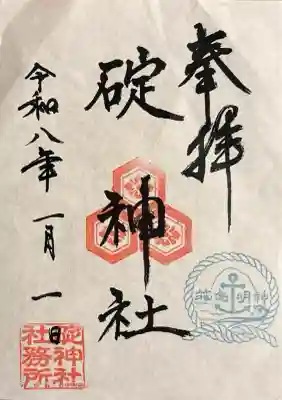 奉拝
碇神社
令和八年一月一日
碇神社
社務所